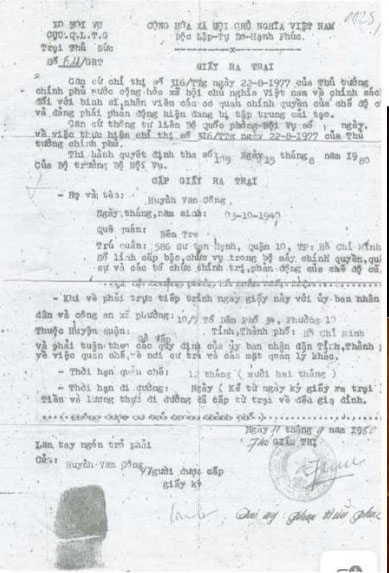 BỘ NỘI VỤ
CỘNG HÒA XÃ HỘI CHỦ NGHĨA VIỆT NAM
CỤC.Q.L.T.G
Độc Lập-Tự Do-Hạnh Phúc.
Trại Thủ Đức
Số /GRT
GIẤY RA TRẠI
Căn cứ chỉ thị số 316/TTg ngày 22-8-1977 của Thủ tướng
chính phủ nước cộng hòa xã hội chủ nghĩa Việt Nam về chính sách
đối với binh sĩ,nhân viên các cơ quan chính quyền của chế độ cũ
và đảng phái phản động hiện đang bị tập trung cải tạo.
Căn cứ thông tư liên Bộ quốc phòng-Nội Vụ số , ngày.
về việc thực hiện chỉ thị số 316/TTg ngày 22-8-1977 của Thủ
tướng chính phủ.
Thi hành quyết định tha số 109 Ngày 15 tháng 8 năm 1980
Của Bộ trưởng Bộ Nội Vụ.
CẤP GIẤY RA TRẠI
- Họ và tên:
Huỳnh Văn Công
Ngày,tháng,năm sinh: 03-10-1940
Quê quán: Bến Tre
Trú quán: 586 Sư Vạn Hạnh, quận 10, TP: Hồ Chí Minh
Số lính cấp bậc,chức vụ trong bộ máy chính quyền,quân
sự và các tổ chức chính trị,phản động của chế độ cũ.
- Khi về phải trực tiếp trình ngay giấy này với ủy ban nhân
dân và công an xã phường: 10/5 Tổ Dân Phố 34, Phường 10
Thuộc Huyện quận: Tỉnh,Thành phố: Hồ Chí Minh
và phải tuân theo các quy định của ủy ban nhân dân Tỉnh,Thành
về việc quản chế,về nơi cư trú và các mặt quản lý khác.
- Thời hạn quản chế: 12 tháng ( mười hai tháng )
- Thời hạn đi đường: Ngày ( Kể từ ngày ký giấy ra trại )
Tiền và lương thực đi đường đã cấp từ trại về đến gia đình.
Ngày 11 tháng 9 năm 1980
Lăn tay ngón trỏ phải
GIÁM THỊ
Của: Huỳnh Văn Công
Người được cấp
giấy ký